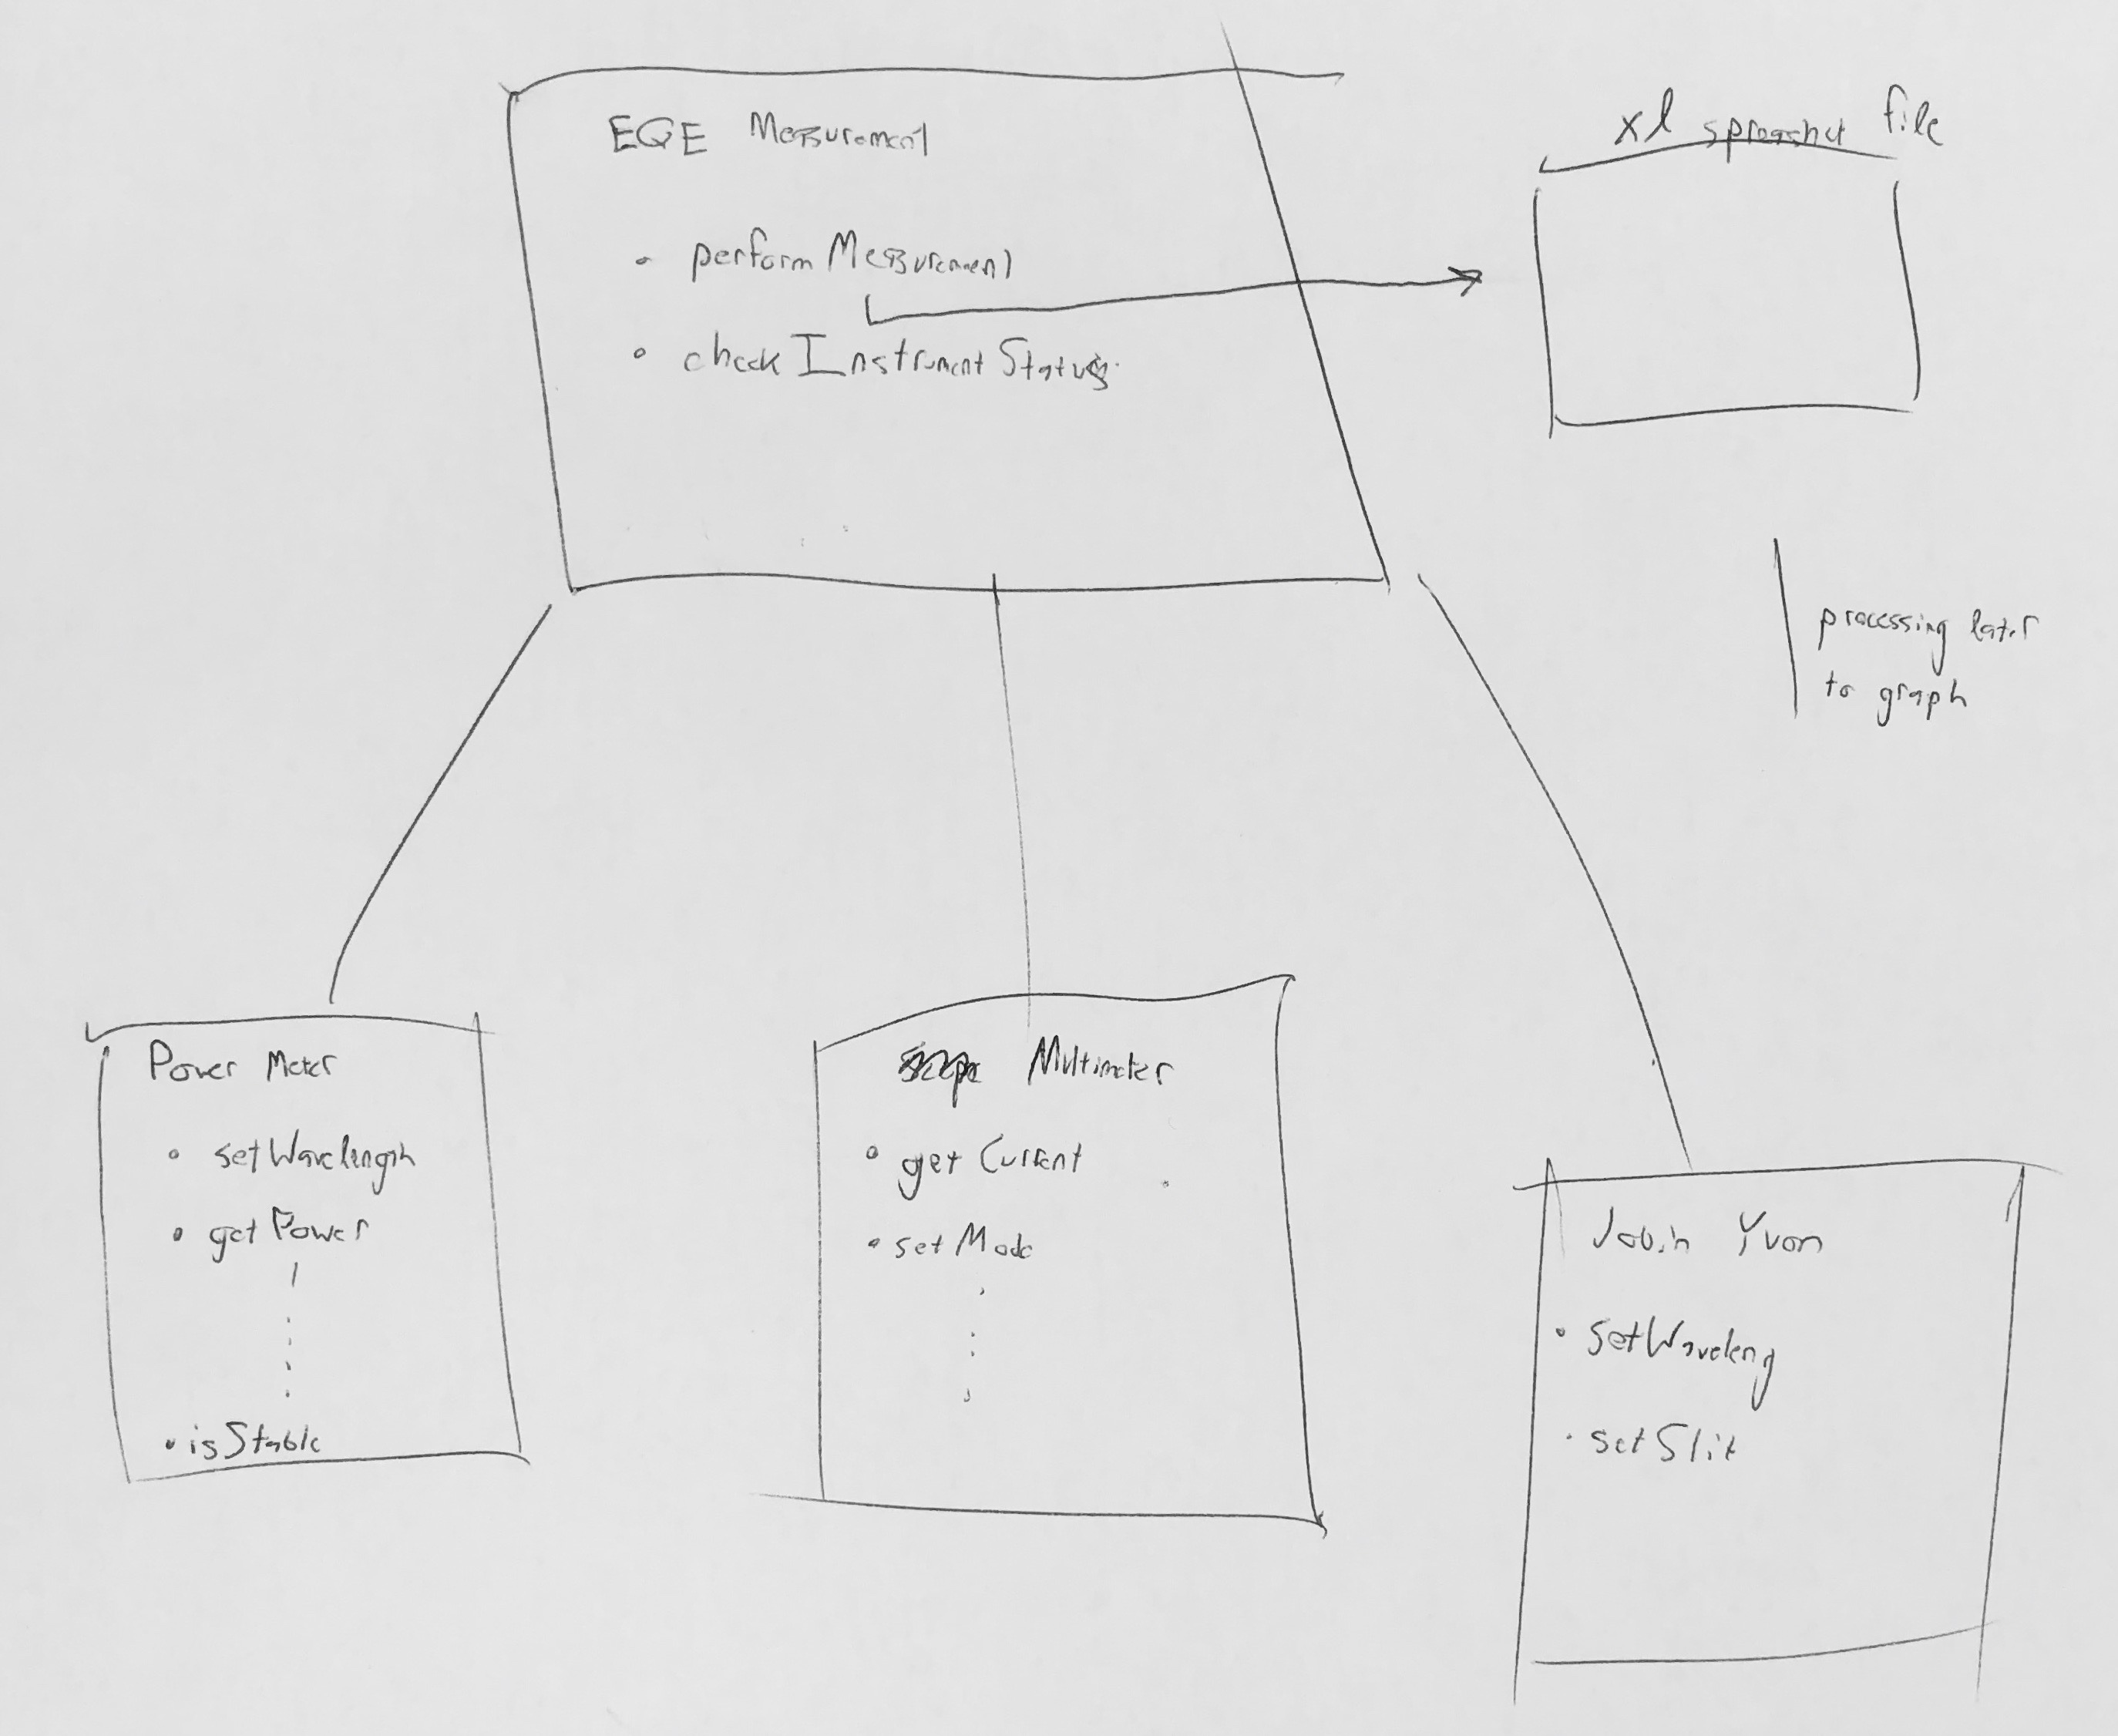 EQE Measurement
• perform Measurement
• check Instrument Status
xl spreashet file
processing later
to graph
Power Meter
• setWavelength
• getPower
• isStable
Multimeter
• get Current
• set Mode
Jobin Yvon
• setWaveleng
• setSlit